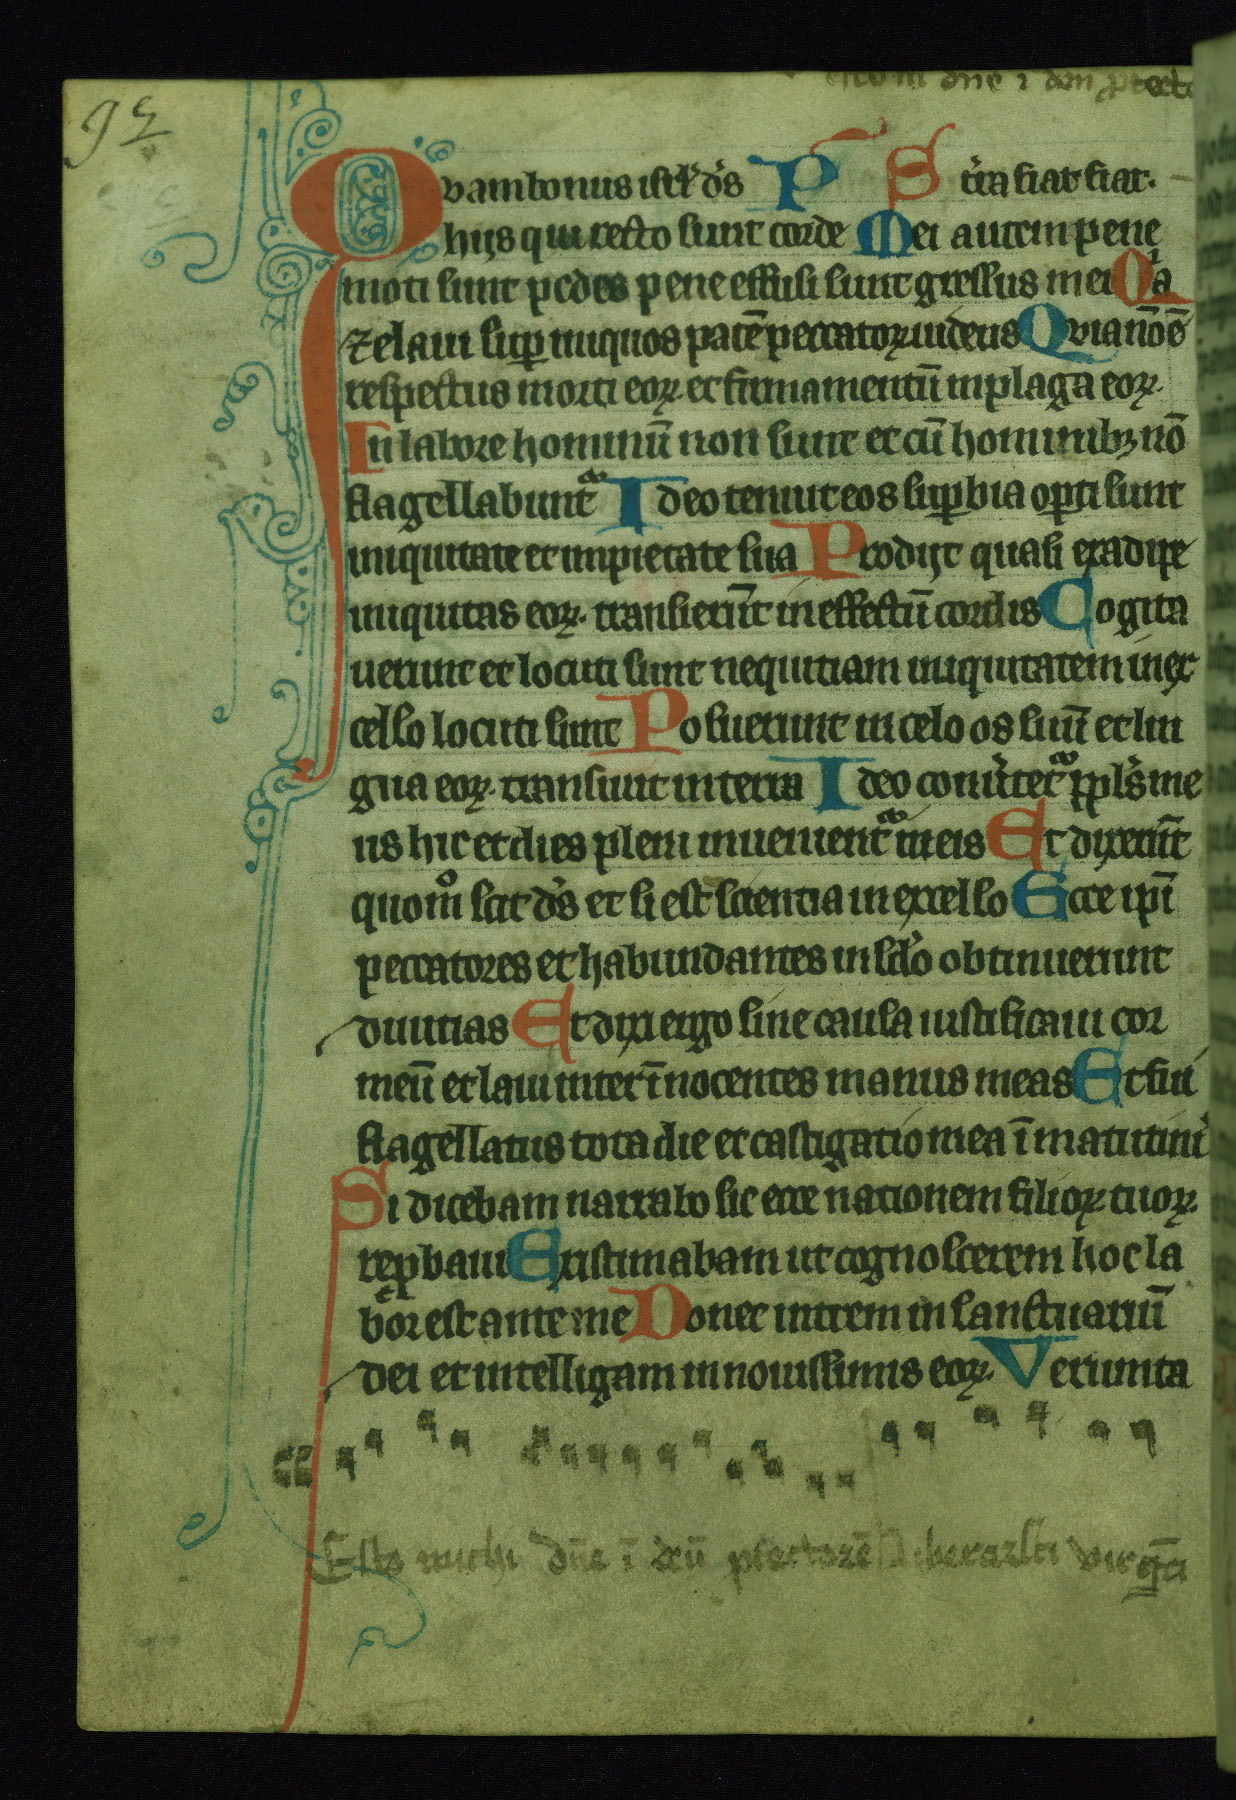 92
esto m dn̄e i dm̄ ꝓtecto
Qvam bonus isrl' d's Ps t'ra fiat fiat.
hijs qui recto sunt corde Mei autem pene
moti sunt pedes pene effusi sunt gressus mei Q'a
zelaui suꝑ iniquos pacē peccatoꝝ uidens Qvia nō ē
respectus morti eoꝝ. et firmamentū in plaga eoꝝ.
In labore hominū non sunt et cū hominibꝫ nō
flagellabunt᷑ Ideo tenuit eos suꝑbia oꝑti sunt
iniquitate et impietate sua Prodijt quasi ex adipe
iniquitas eoꝝ. transierūt in effectū cordis Cogita
uerunt et locuti sunt nequitiam iniquitatem in ex
celso locuti sunt Posuerunt in celo os suū et lin
gua eoꝝ. transiuit in terra Ideo conu'tet᷑ ppl's me
us hic et dies pleni inuenient᷑ in eis Et dixerūt
quomͦ scit d's et si est scientia in excelso Ecce ip̄i
peccatores et habundantes in sc'lo obtinuerunt
diuitias Et dixi ergo sine causa iustificaui cor
meū et laui inter īnocentes manus meas Et fui
flagellatus tota die et castigatio mea ī matutini'
Si dicebam narrabo sic ecce nationem filioꝝ. tuoꝝ.
reꝓbaui Existimabam ut cognoscerem hoc la
bor est ante me Donec intrem in sanctuariū
dei et intelligam in nouissimis eoꝝ. Verumta
Esto michi dn̄e ī deū ꝓtectorē